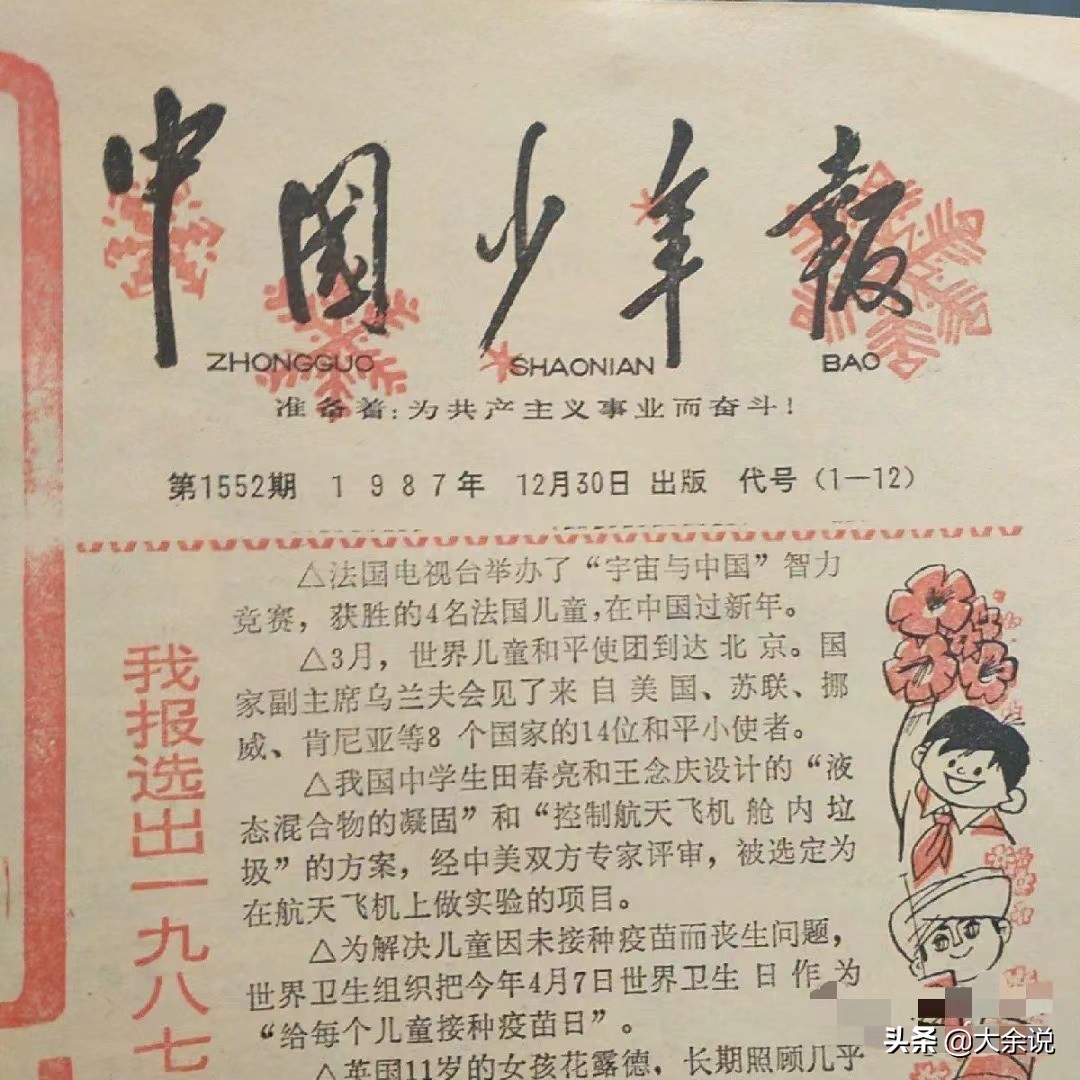 中國少年報
ZHONGGUO SHAONIAN BAO
准备着:为共产主义事业而奋斗!
第1552期 1987年 12月30日 出版 代号(1—12)
我报选出一九八七
△法国电视台举办了“宇宙与中国”智力
竞赛，获胜的4名法国儿童,在中国过新年。
△3月，世界儿童和平使团到达北京。国
家副主席乌兰夫会见了来自美国、苏联、挪
威、肯尼亚等8个国家的14位和平小使者。
△我国中学生田春亮和王念庆设计的“液
态混合物的凝固”和“控制航天飞机舱内垃
圾”的方案，经中美双方专家评审，被选定为
在航天飞机上做实验的项目。
△为解决儿童因未接种疫苗而丧生问题，
世界卫生组织把今年4月7日世界卫生日作为
“给每个儿童接种疫苗日”。
△英国11岁的女孩花露德，长期照顾几乎
头条 @大余说